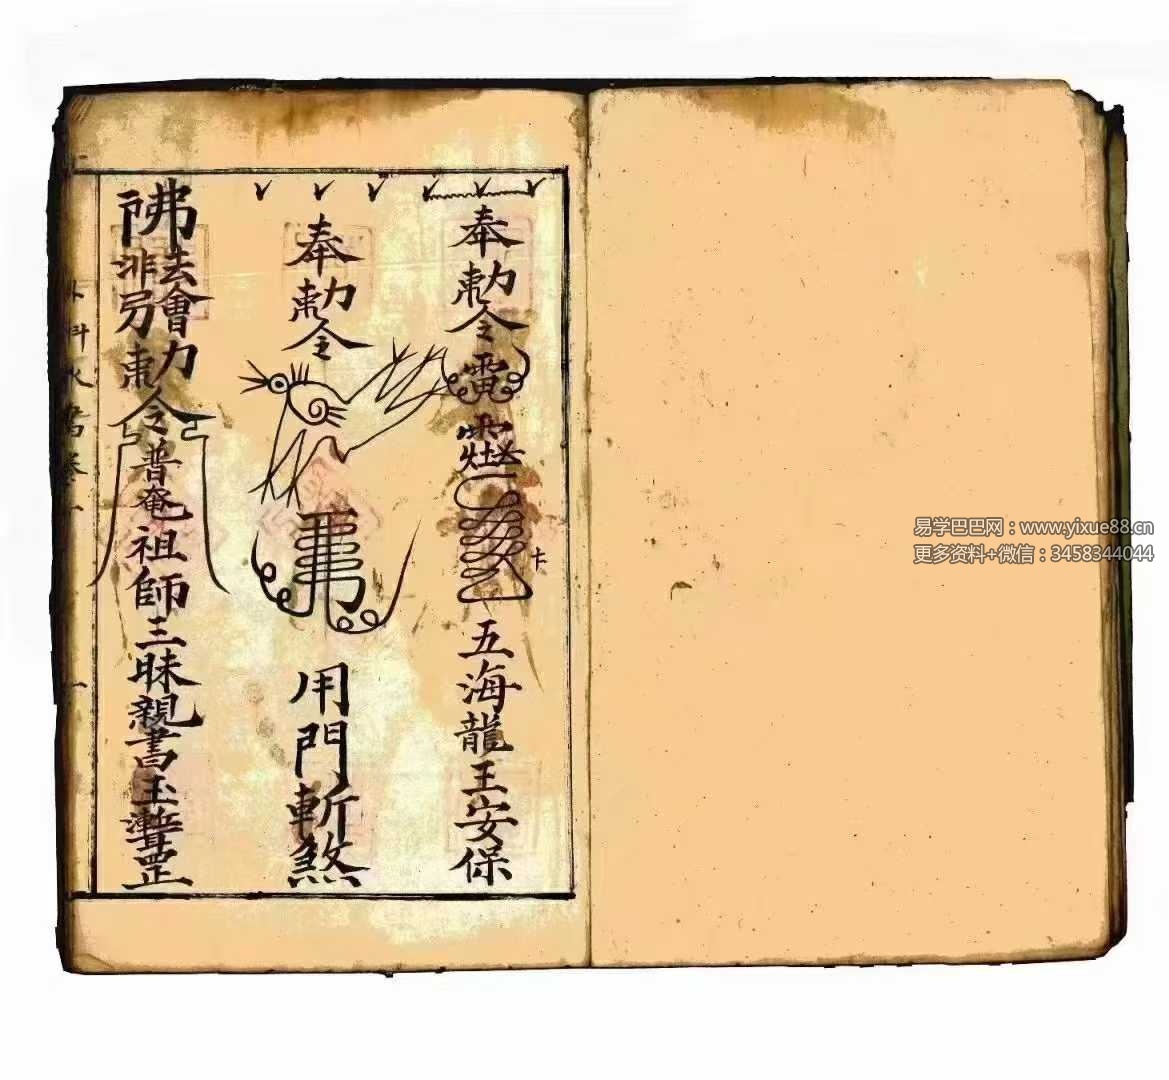 奉勅令
五海龍王安保
奉勅令
用門斬煞
佛
法會
勅令普奄祖師三昧親書玉
罡
科水
卷一
一
易学巴巴网：www.yixue88.cn
更多资料+微信：3458344044